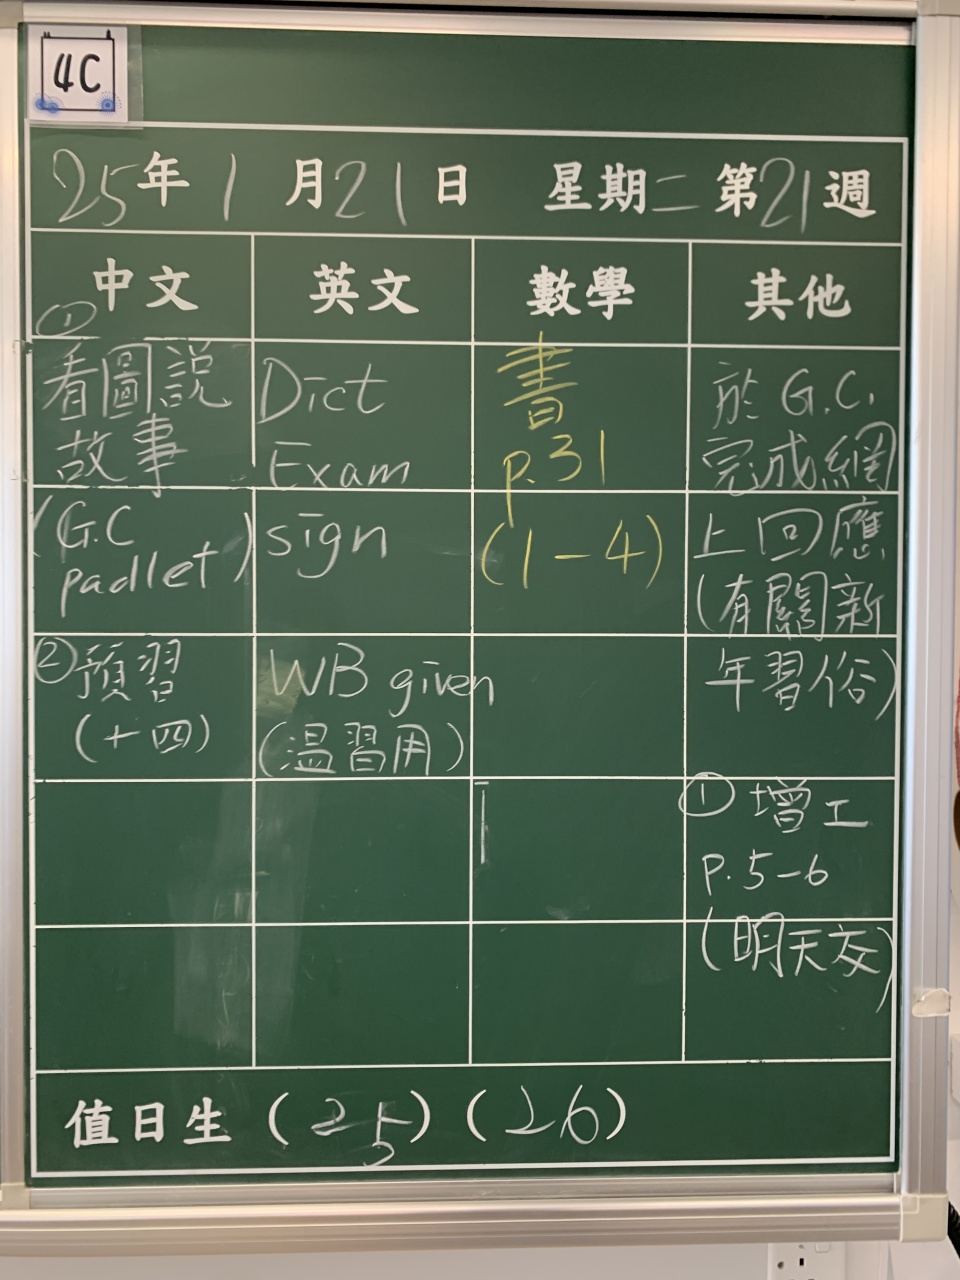 4C
25年1月21日 星期二 第21週
中文 英文 數學 其他
①
看圖說
故事
(G.C
padlet)
②預習
(十四)
Dict
Exam
sign
WB given
(溫習用)
書
p.31
(1-4)
於 G.C.
完成網
上回應
(有關新
年習俗)
① 增工
P.5-6
(明天交)
值日生 (25) (26)